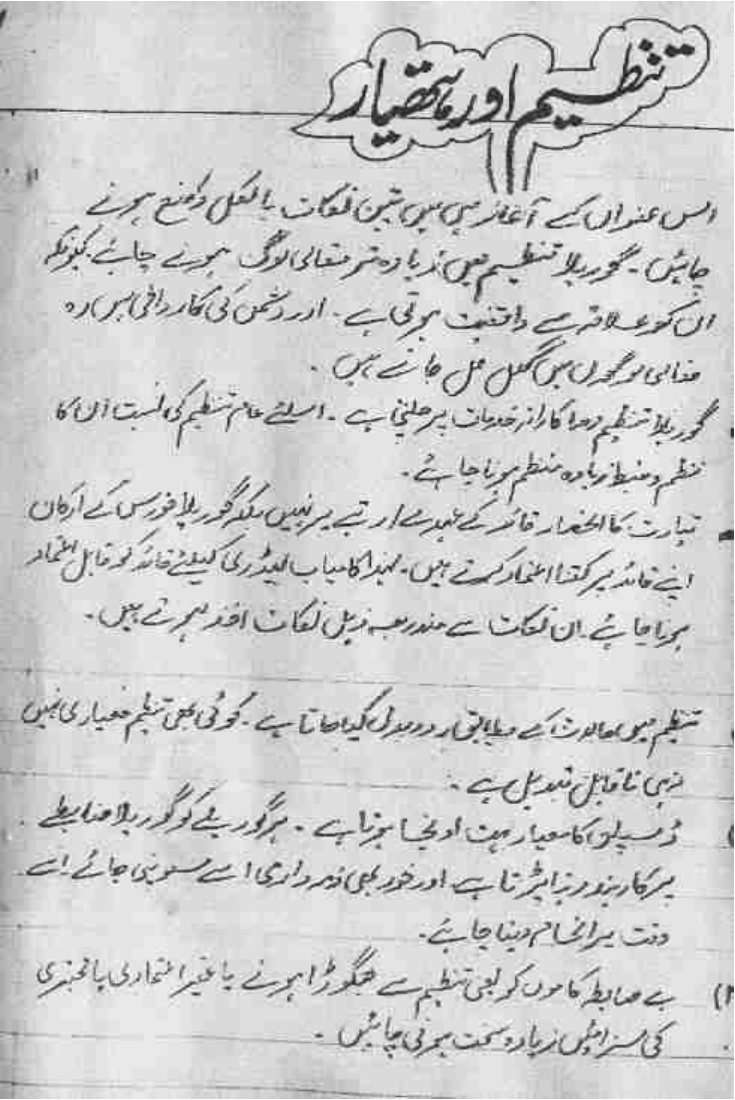 تنظیم اور ہتھیار
اس عنوان کے آغاز میں ہی تین نکات بالکل واضح ہونے
چاہئیں۔ گوریلا تنظیم میں زیادہ تر مقامی لوگ ہونے چاہئے کیونکہ
ان کو علاقہ سے واقفیت ہوتی ہے۔ اور دشمن کی کاروائی میں وہ
مقامی لوگوں میں گھل مل جاتے ہیں۔
گوریلا تنظیم رضا کارانہ خدمات پر چلتی ہے۔ اسلئے عام تنظیم کی نسبت ان کا
نظم و ضبط زیادہ منظم ہونا چاہئے۔
قیادت کا انحصار قائد کے عہدے اور تبے پر نہیں بلکہ گوریلا فورس کے ارکان
اپنے قائد پر کتنا اعتماد کرتے ہیں۔ لہذا کامیاب لیڈری کیلئے قائد کو قابل اعتماد
ہونا چاہئے ان نکات سے مندرجہ ذیل نکات اخذ ہوتے ہیں۔
تنظیم میں حالات کے مطابق ردوبدل کیا جاتا ہے۔ کوئی بھی تنظیم معیاری نہیں
نہ ہی ناقابل تبدیل ہے۔
ڈسپلن کا معیار بہت اونچا ہوتا ہے۔ ہر گوریلے کو گوریلا ضابطے
پر کاربند ہونا پڑتا ہے اور جو بھی ذمہ داری اسے سونپی جائے اسے
وقت پر انجام دینا چاہئے۔
بے ضابطہ کاموں کو یعنی تنظیم سے بھگوڑا ہونے یا غیر اعتمادی یا مخبری
کی سزائیں زیادہ سخت ہونی چاہئیں۔